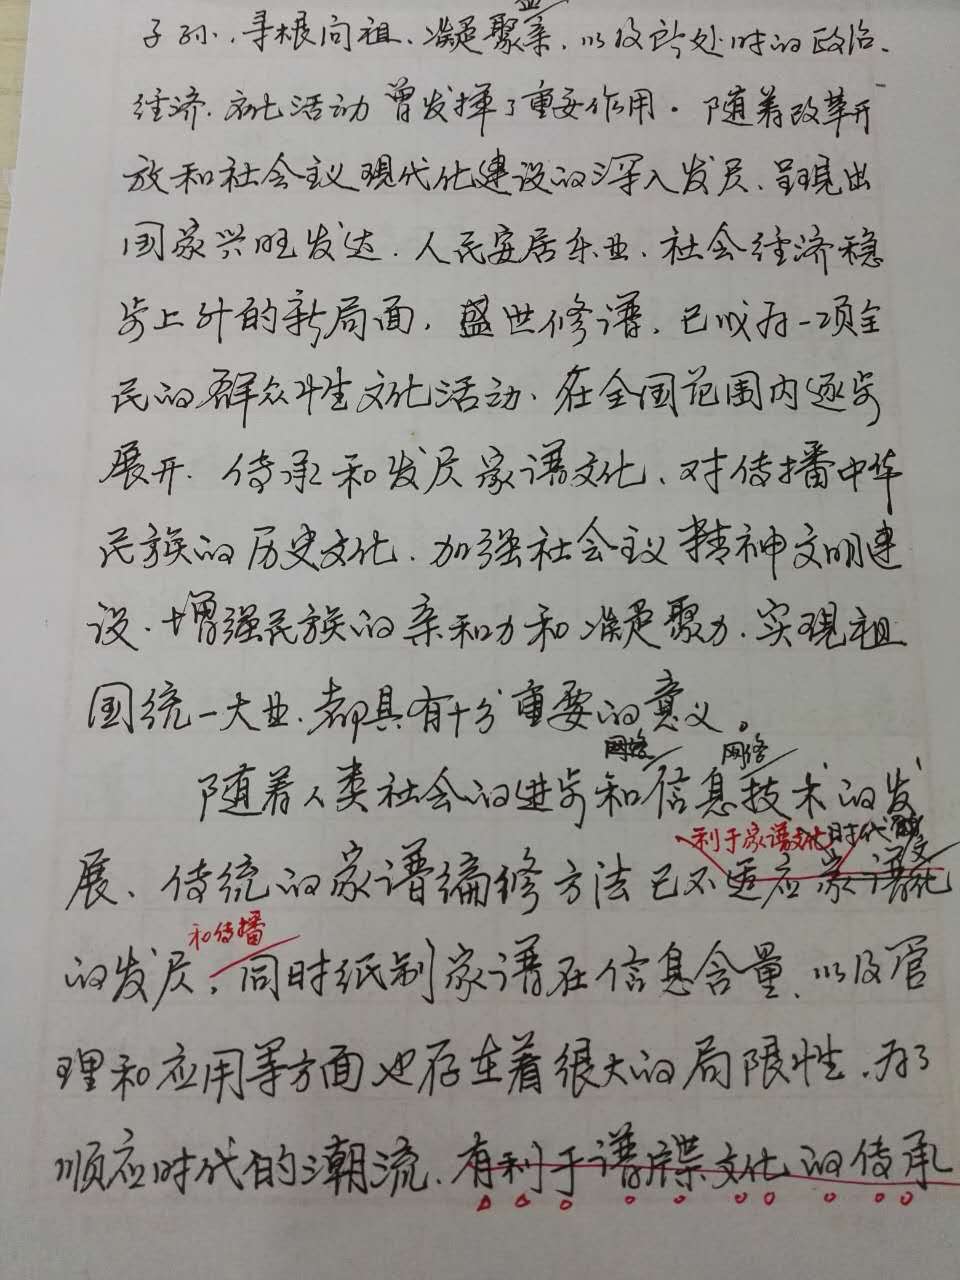 子孙、寻根问祖、凝聚亲
以及所处时的政治、
经济、文化活动曾发挥了重要作用。随着改革开
放和社会主义现代化建设的深入发展、呈现出
国家兴旺发达、人民安居乐业、社会经济稳
步上升的新局面，盛世修谱，已成为一项全
民的群众性文化活动、在全国范围内逐步
展开、传承和发展家谱文化、对传播中华
民族的历史文化、加强社会主义精神文明建
设、增强民族的亲和力和凝聚力、实现祖
国统一大业、都具有十分重要的意义。
网络 网络
随着人类社会的进步和信息技术的发
利于家谱文化 时代
展、传统的家谱编修方法已不适应家谱文化
和传播
的发展，同时纸制家谱在信息含量、以及管
理和应用等方面也存在着很大的局限性、为了
顺应时代的潮流、有利于谱牒文化的传承